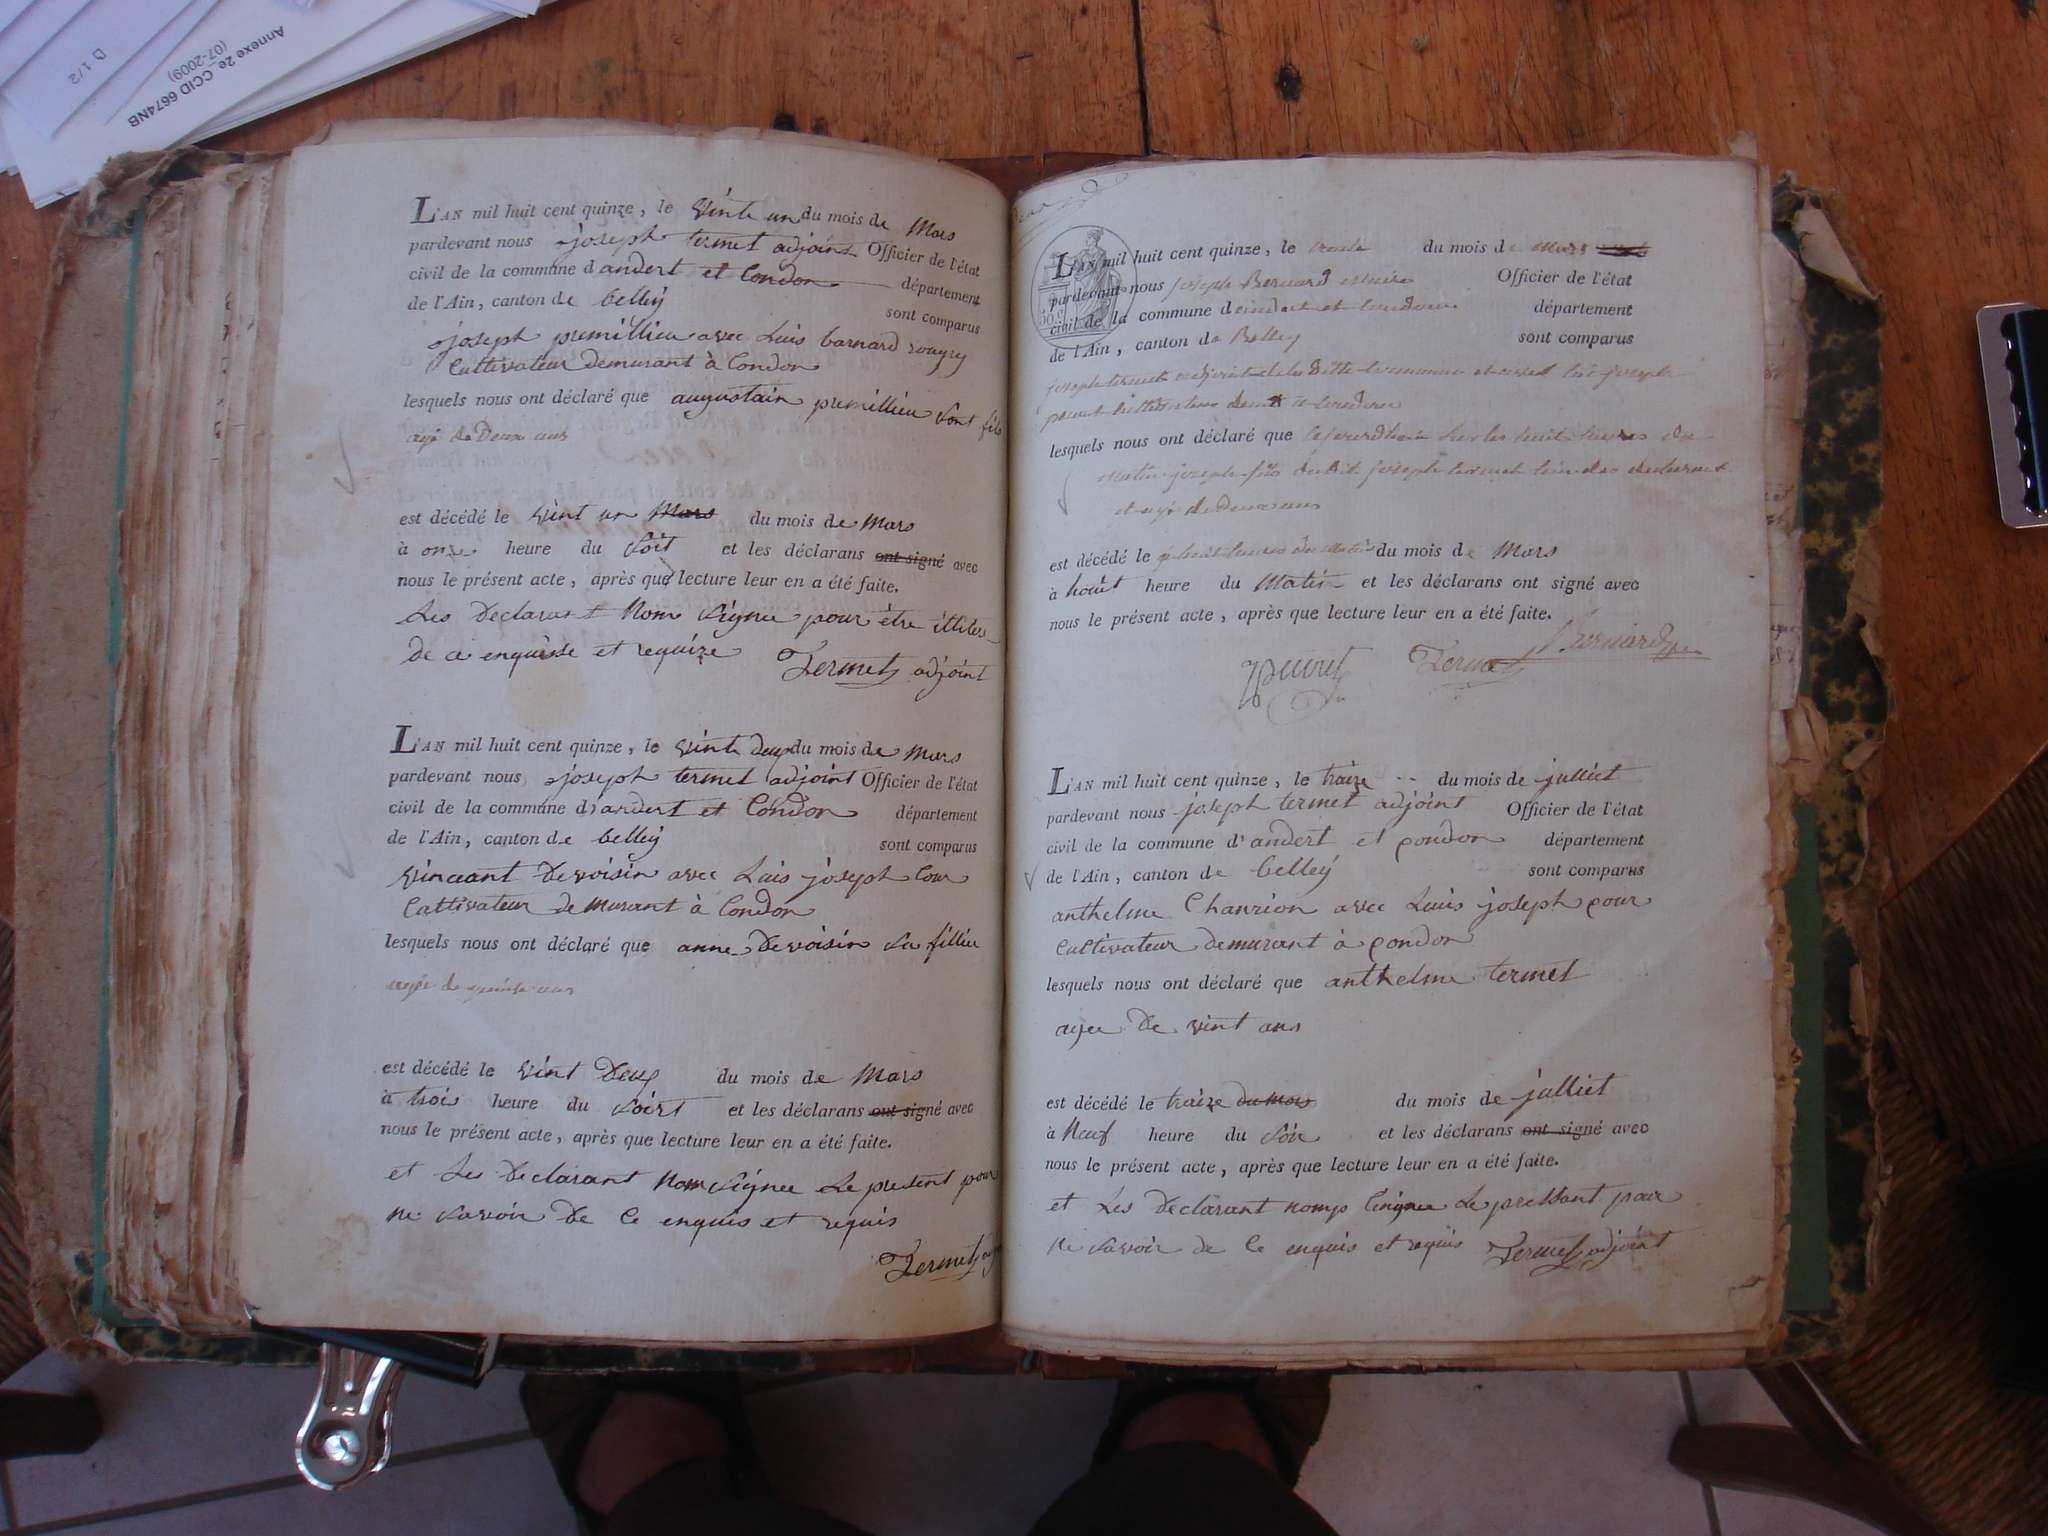 Annexe 2e_CCID 6674NB
(07-2009)
D 1/2
L'AN mil huit cent quinze, le vinte un du mois de Mars
pardevant nous joseph termet adjoint Officier de l'état
civil de la commune d'andert et Condon département
de l'Ain, canton de belley sont comparus
joseph premillieu avec Luis barnard
Cultivateur demurant à Condon
lesquels nous ont déclaré que augustain premillieu sont fils
agé de Deux ans
est décédé le vint un Mars du mois de Mars
à onze heure du soit et les déclarans ont signé avec
nous le présent acte, après que lecture leur en a été faite.
Les Declarant Nom signee pour être illitere
de ce enquisse et requize Termet adjoint
L'AN mil huit cent quinze, le vinte deux du mois de Mars
pardevant nous joseph termet adjoint Officier de l'état
civil de la commune d'andert et Condon département
de l'Ain, canton de belley sont comparus
vinceant Devoisin avec Luis joseph Cour
Cattivateur de murant à Condon
lesquels nous ont déclaré que anne Devoisin sa fillieu
agée de quinse ans
est décédé le vint Deux du mois de Mars
à troi heure du soirt et les déclarans ont signé avec
nous le présent acte, après que lecture leur en a été faite.
et Les Declarant Nom signee Le present pour
ne savoir De Ce enquis et requis
Termet
50 c
L'AN mil huit cent quinze, le trente du mois de Mars
pardevant nous joseph Bernard maire Officier de l'état
civil de la commune d'andert et Condon département
de l'Ain, canton de Belley sont comparus
joseph termet adjoint de la ditte commune et joseph
lesquels nous ont déclaré que cejourdhui sur les huit heures du
matin joseph fils dudit joseph termet
et agé de Deux ans
est décédé le a huit heures du matin du mois de Mars
à houit heure du Matin et les déclarans ont signé avec
nous le présent acte, après que lecture leur en a été faite.
Termet Bernard
L'AN mil huit cent quinze, le traize du mois de julliet
pardevant nous joseph termet adjoint Officier de l'état
civil de la commune d'andert et condon département
de l'Ain, canton de belley sont comparus
anthelme Chanrion avec Luis joseph cour
Cultivateur demurant à condon
lesquels nous ont déclaré que anthelme termet
agee De vint ans
est décédé le traize du mois du mois de julliet
à Neuf heure du soir et les déclarans ont signé avec
nous le présent acte, après que lecture leur en a été faite.
et Les Declarant nomp signee Le pressant pour
ne savoir de Ce enquis et requis Termet adjoint